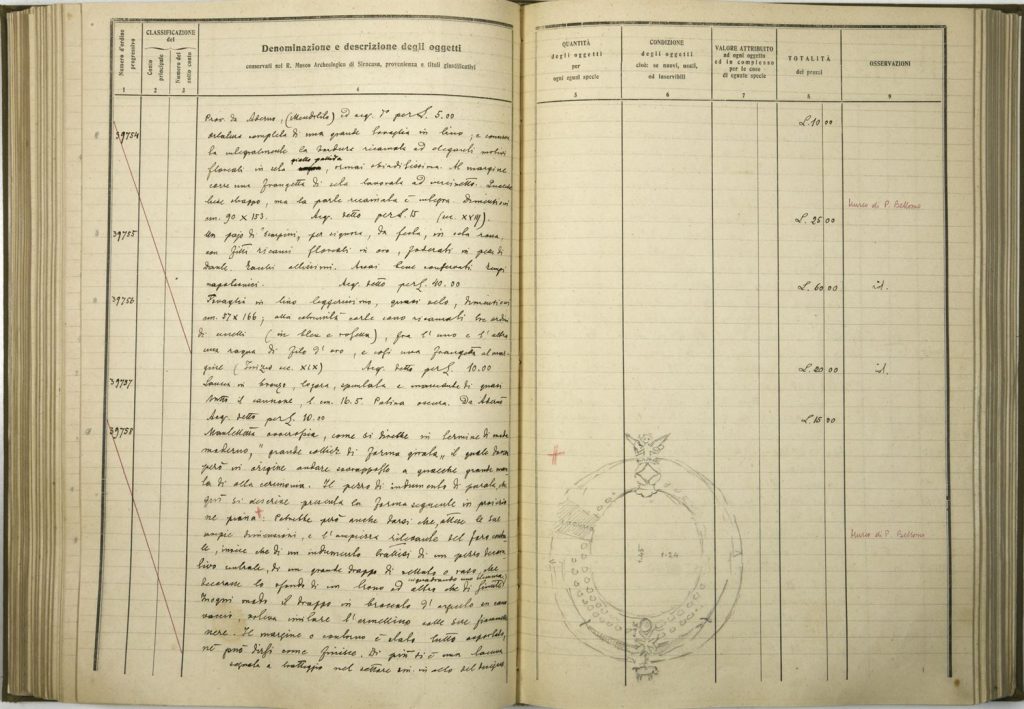 Numero d'ordine progressivo
CLASSIFICAZIONE del
Conto principale
Numero del sotto conto
Denominazione e descrizione degli oggetti
conservati nel R. Museo Archeologico di Siracusa, provenienza e titoli giustificativi
1 2 3 4
Prov. da Aderno, (Mendolito) ed acq. per £. 5.00
39754 completa di una grande tovaglia in lino; e conserva
integralmente la bordura ricamata ad eleganti motivi
floreali in seta giallo pallida, ormai sbiaditissima. Al margine
corre una frangetta di seta lavorata ad uncinetto. Qualche
lieve strappo, ma la parte ricamata è integra. Dimensioni
cm. 90 x 153. Acq. detto per £. 15 (sec. XVII).
39755 Un pajo di scarpini, per signora, da festa, in seta rossa,
con fitti ricami floreali in oro, foderati in pelle di
Dante. Tacchi altissimi. Assai bene conservati. Tempi
napoleonici. Acq. detto per £. 40.00
39756 Tovaglia in lino leggerissimo, quasi velo, dimensioni
cm. 57 x 166; alla estremità corte sono ricamati tre ordini
di uccelli (in bleu e rosetta), fra l'uno e l'altro
una di filo d'oro, e così una frangetta al mar-
gine (Inizio sec. XIX) Acq. detto per £. 10.00
39757 Lancia in bronzo, logora, spuntata e mancante di quasi
tutto il cannone, l. cm. 16.5. Patina oscura. Da Adernò
Acq. detto per £. 10.00
39758 Mantelletta, come si direbbe in termine di moda
moderno, "grande collier di forma girata", il quale doveva
però in origine andare sovrapposto a qualche grande
di alta ceremonia. Il pezzo di indumento di parata, che
quì si descrive presenta la forma seguente in proiezio
ne piana: Potrebbe però anche darsi che, attese le sue
ampie dimensioni, e l'ampiezza rilevante del foro centra
le, invece che di un indumento trattisi di un pezzo decora
tivo centrale, di un grande drappo di velluto o raso, che
decorasse lo sfondo di un trono ad altro che di simile
inquadrando uno stemma
In ogni modo il drappo in broccato d'aspetto
voleva imitare l'ermellino colle sue fiammelle
nere. Il margine o contorno è stato tutto asportato,
nè può dirsi come finisse. Di più vi è una lacuna
segnata a tratteggio nel settore
QUANTITÀ degli oggetti per ogni egual specie
CONDIZIONE degli oggetti cioè: se nuovi, usati, od inservibili
VALORE ATTRIBUITO ad ogni oggetto ed in complesso per le cose di eguale specie
TOTALITÀ dei prezzi
OSSERVAZIONI
5 6 7 8 9
£. 10 00
Museo di P. Bellomo
£. 25 00
£. 60 00 id.
£. 20 00 id.
£. 15 00
Museo di P. Bellomo
1.24